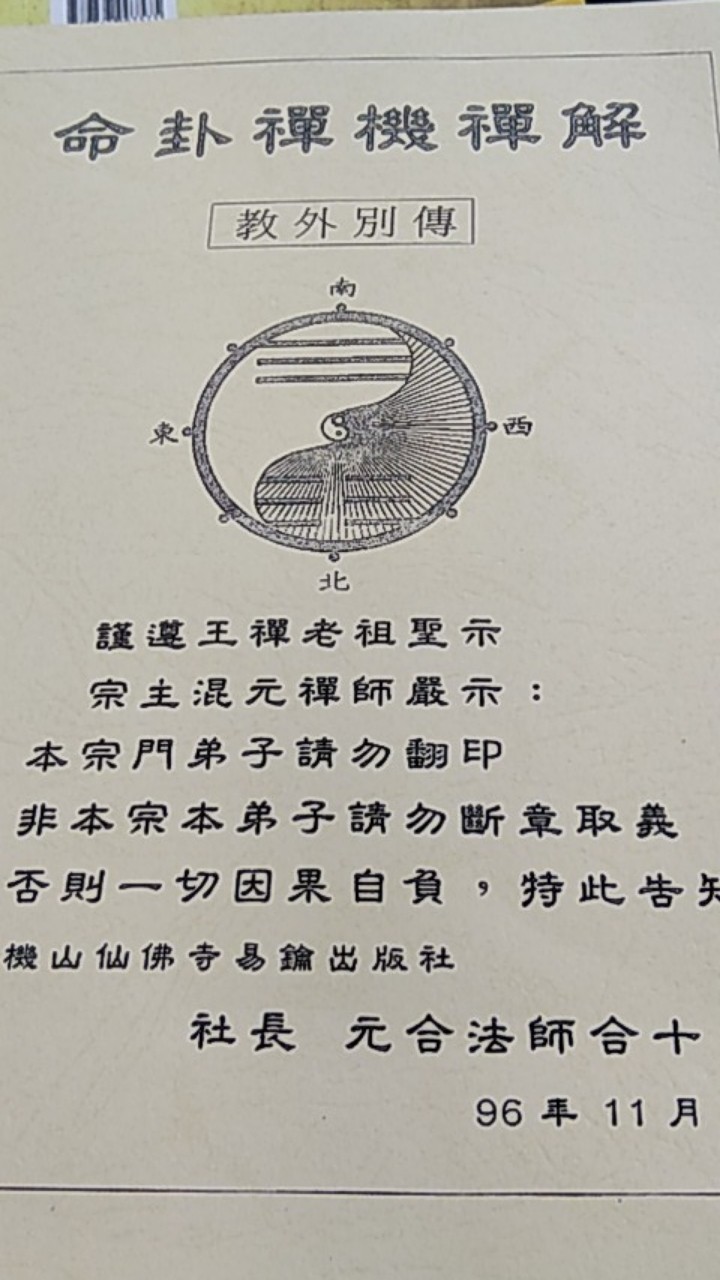 命卦禪機禪解
教外別傳
南
東
西
北
謹遵王禪老祖聖示
宗主混元禪師嚴示：
本宗門弟子請勿翻印
非本宗本弟子請勿斷章取義
否則一切因果自負，特此告知
機山仙佛寺易鑰出版社
社長 元合法師合十
96年11月